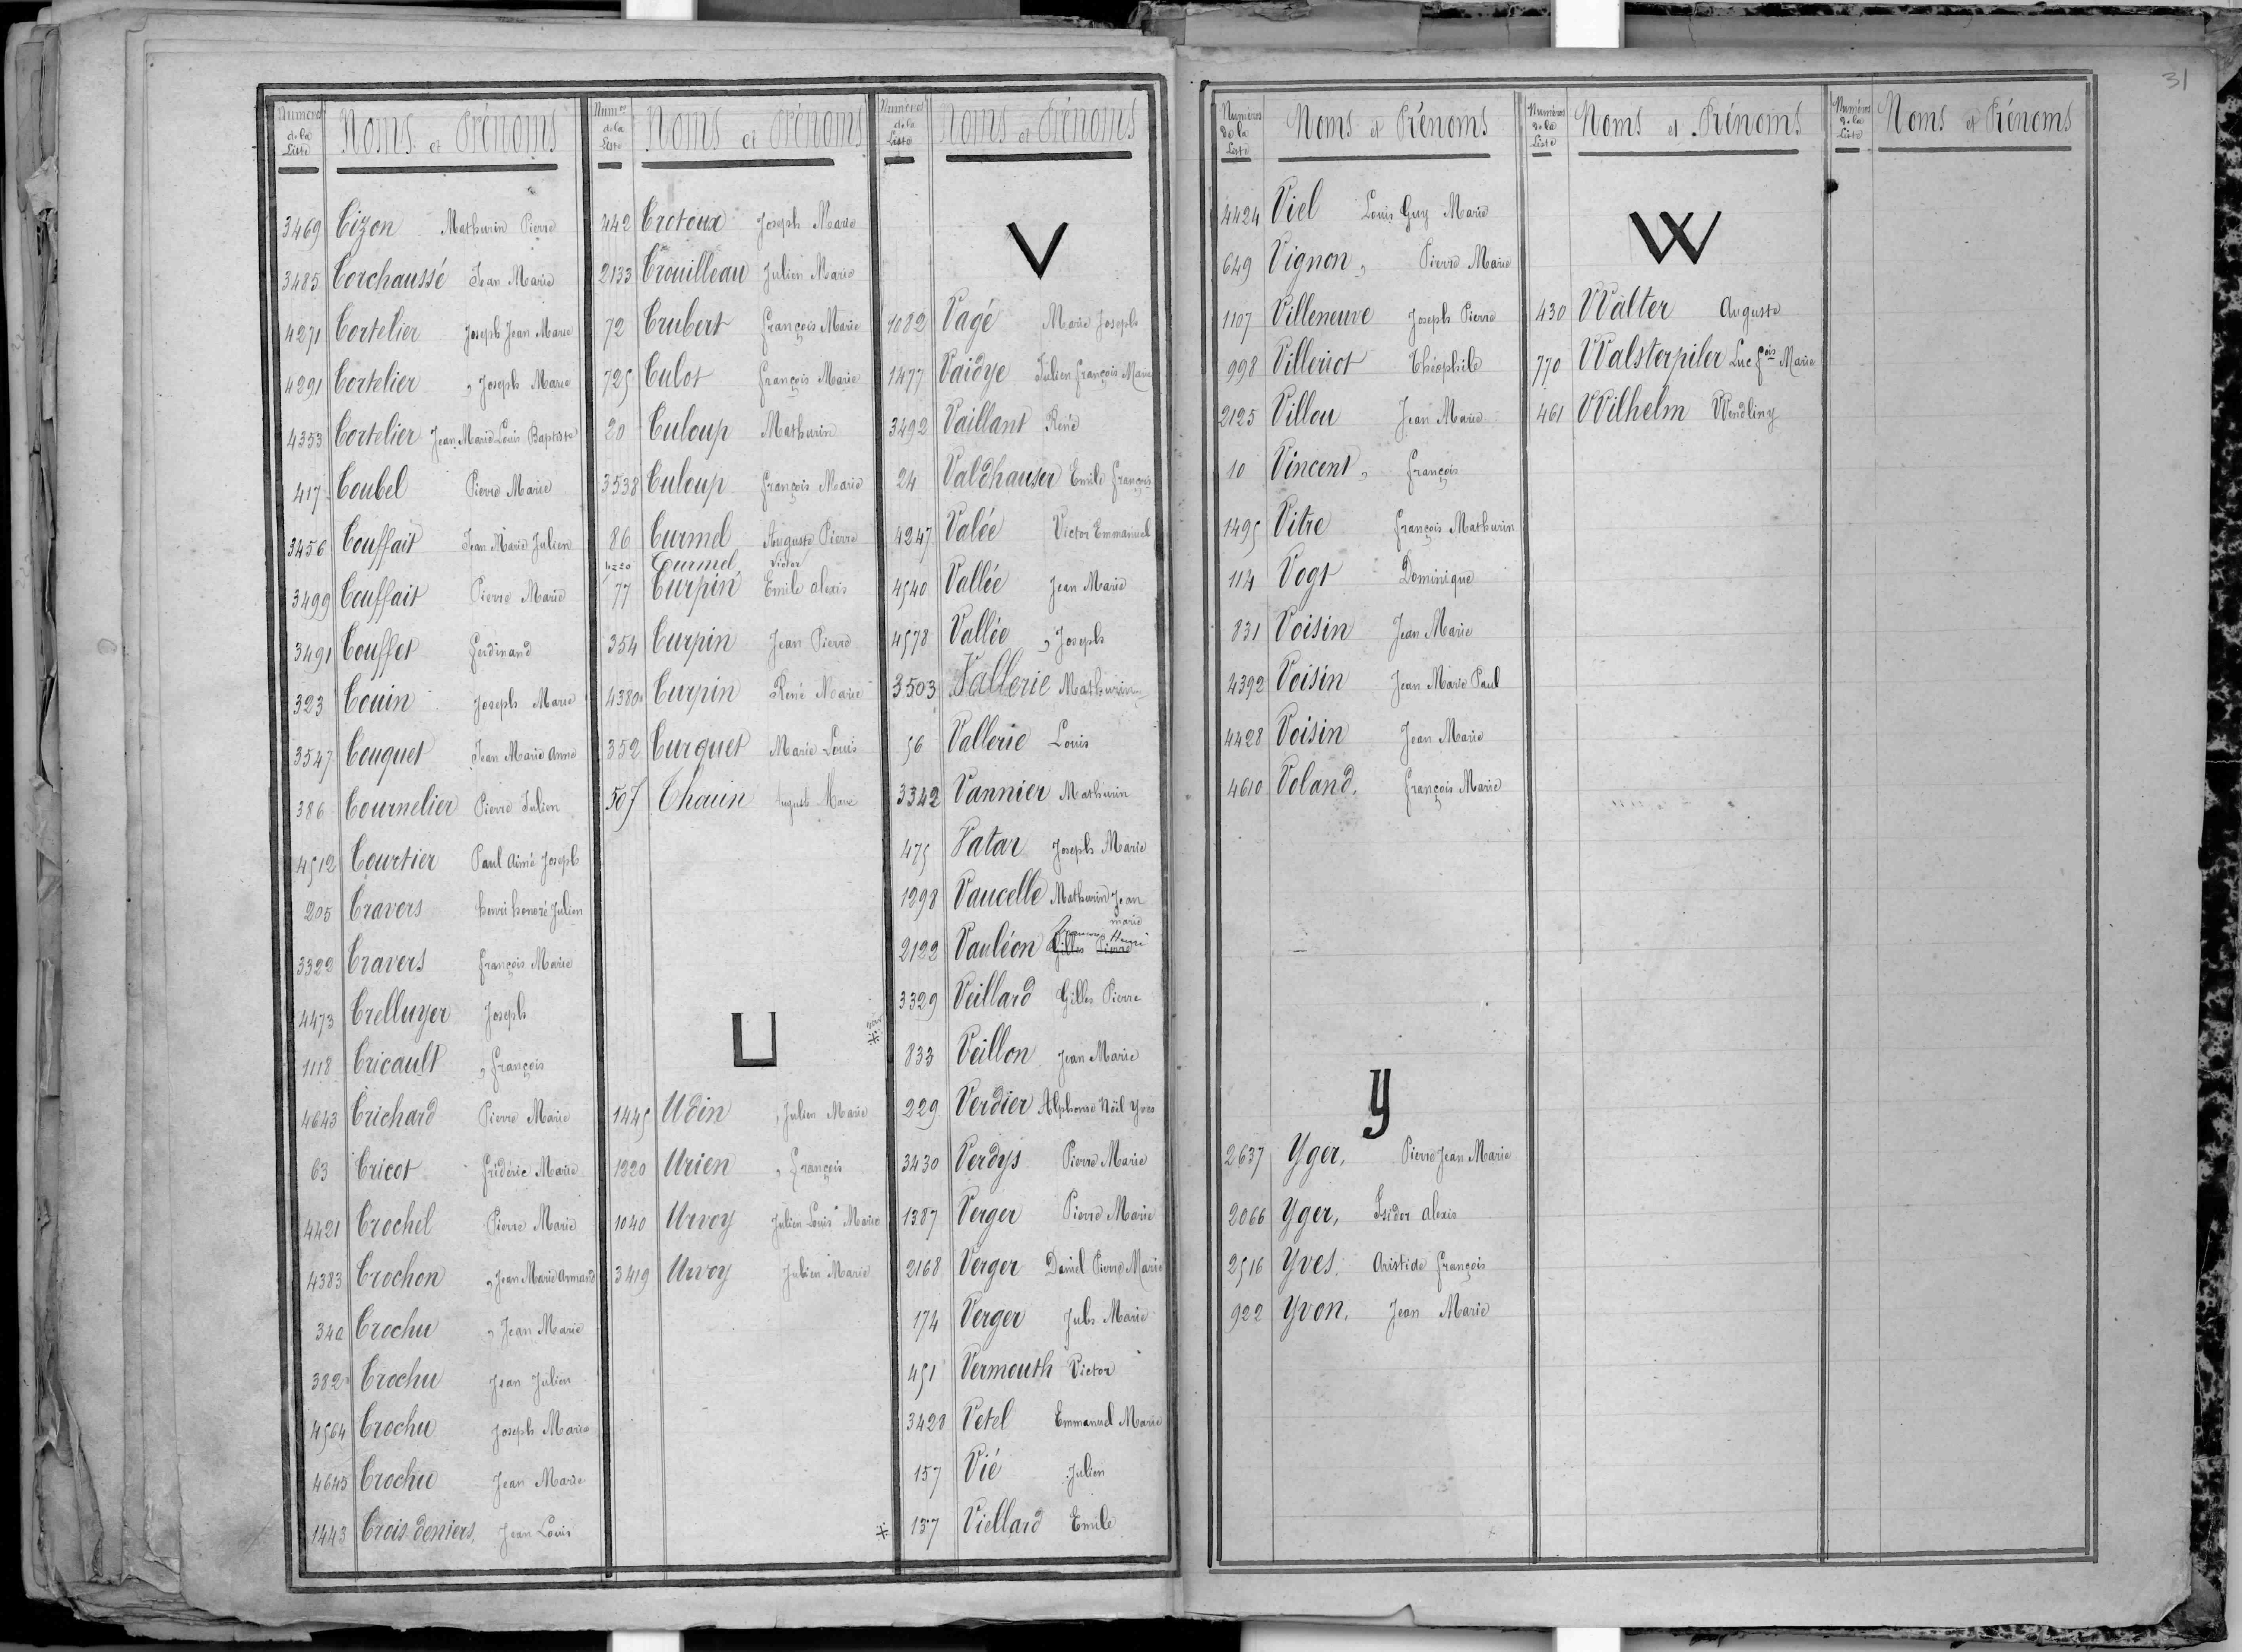 31
Numéros de la Liste
Noms et Prénoms
3469 Tizon Mathurin Pierre
3485 Torchaussé Jean Marie
4271 Tortelier Joseph Jean Marie
4291 Tortelier, Joseph Marie
4353 Tortelier Jean Marie Louis Baptiste
417 Toubel Pierre Marie
3456 Touffait Jean Marie Julien
3499 Touffait Pierre Marie
3491 Touffet Ferdinand
323 Touin Joseph Marie
3547 Touquet Jean Marie Anne
386 Tournelier Pierre Julien
4512 Tourtier Paul Aimé Joseph
205 Travers henri honoré Julien
3322 Travers François Marie
4473 Trelluyer Joseph
1118 Tricault, François
4643 Trichard Pierre Marie
63 Tricot Frédéric Marie
4421 Trochel Pierre Marie
4383 Trochon, Jean Marie Armand
340 Trochu, Jean Marie
382 Trochu Jean Julien
4564 Trochu Joseph Marie
4645 Trochu Jean Marie
1443 Trois-deniers, Jean Louis
Num.os de la Liste
Noms et Prénoms
442 Trotoux Joseph Marie
2133 Trouilleau Julien Marie
72 Trubert François Marie
725 Tulot François Marie
20 Tuloup Mathurin
3538 Tuloup François Marie
86 Turmel Auguste Pierre
Turmel, Victor
77 Turpin Emile alexis
354 Turpin Jean Pierre
4380 Turpin René Marie
352 Turquet Marie Louis
507 Thouin August Marie
U
1445 Udin, Julien Marie
1220 Urien, François
1040 Urvoy Julien Louis Marie
3419 Urvoy Julien Marie
Numéros de la Liste
Noms et Prénoms
V
1082 Vagé Marie Joseph
1477 Vaidye Julien François Marie
3492 Vaillant René
24 Valdhauser Emile François
4247 Valée Victor Emmanuel
4540 Vallée Jean Marie
4578 Vallée, Joseph
3503 Vallerie Mathurin
56 Vallerie Louis
3342 Vannier Mathurin
475 Vatar Joseph Marie
1298 Vaucelle Mathurin Jean
marie
Henri
2122 Vauléon Gilles Pierre
3329 Veillard Gilles Pierre
833 Veillon Jean Marie
229 Verdier Alphonse Noël Yves
3430 Verdys Pierre Marie
1387 Verger Pierre Marie
2168 Verger Daniel Pierre Marie
174 Verger Jules Marie
451 Vermouth Victor
3428 Vetel Emmanuel Marie
157 Vié Julien
137 Viellard Emile
Numéros de la Liste
Noms et Prénoms
4424 Viel Louis Guy Marie
649 Vignon, Pierre Marie
1107 Villeneuve Joseph Pierre
998 Villeriot Théophile
2125 Villou Jean Marie
10 Vincent, François
1495 Vitre François Mathurin
114 Vogt Dominique
831 Voisin Jean Marie
4392 Voisin Jean Marie Paul
4428 Voisin Jean Marie
4610 Voland, François Marie
Y
2637 Yger, Pierre Jean Marie
2066 Yger, Isidor alexis
2516 Yves, Aristide François
922 Yvon, Jean Marie
Numéros de la Liste
Noms et Prénoms
W
430 Walter Auguste
770 Walsterpiler Luc Fois Marie
461 Wilhelm Wendling
Numéros de la Liste
Noms et Prénoms